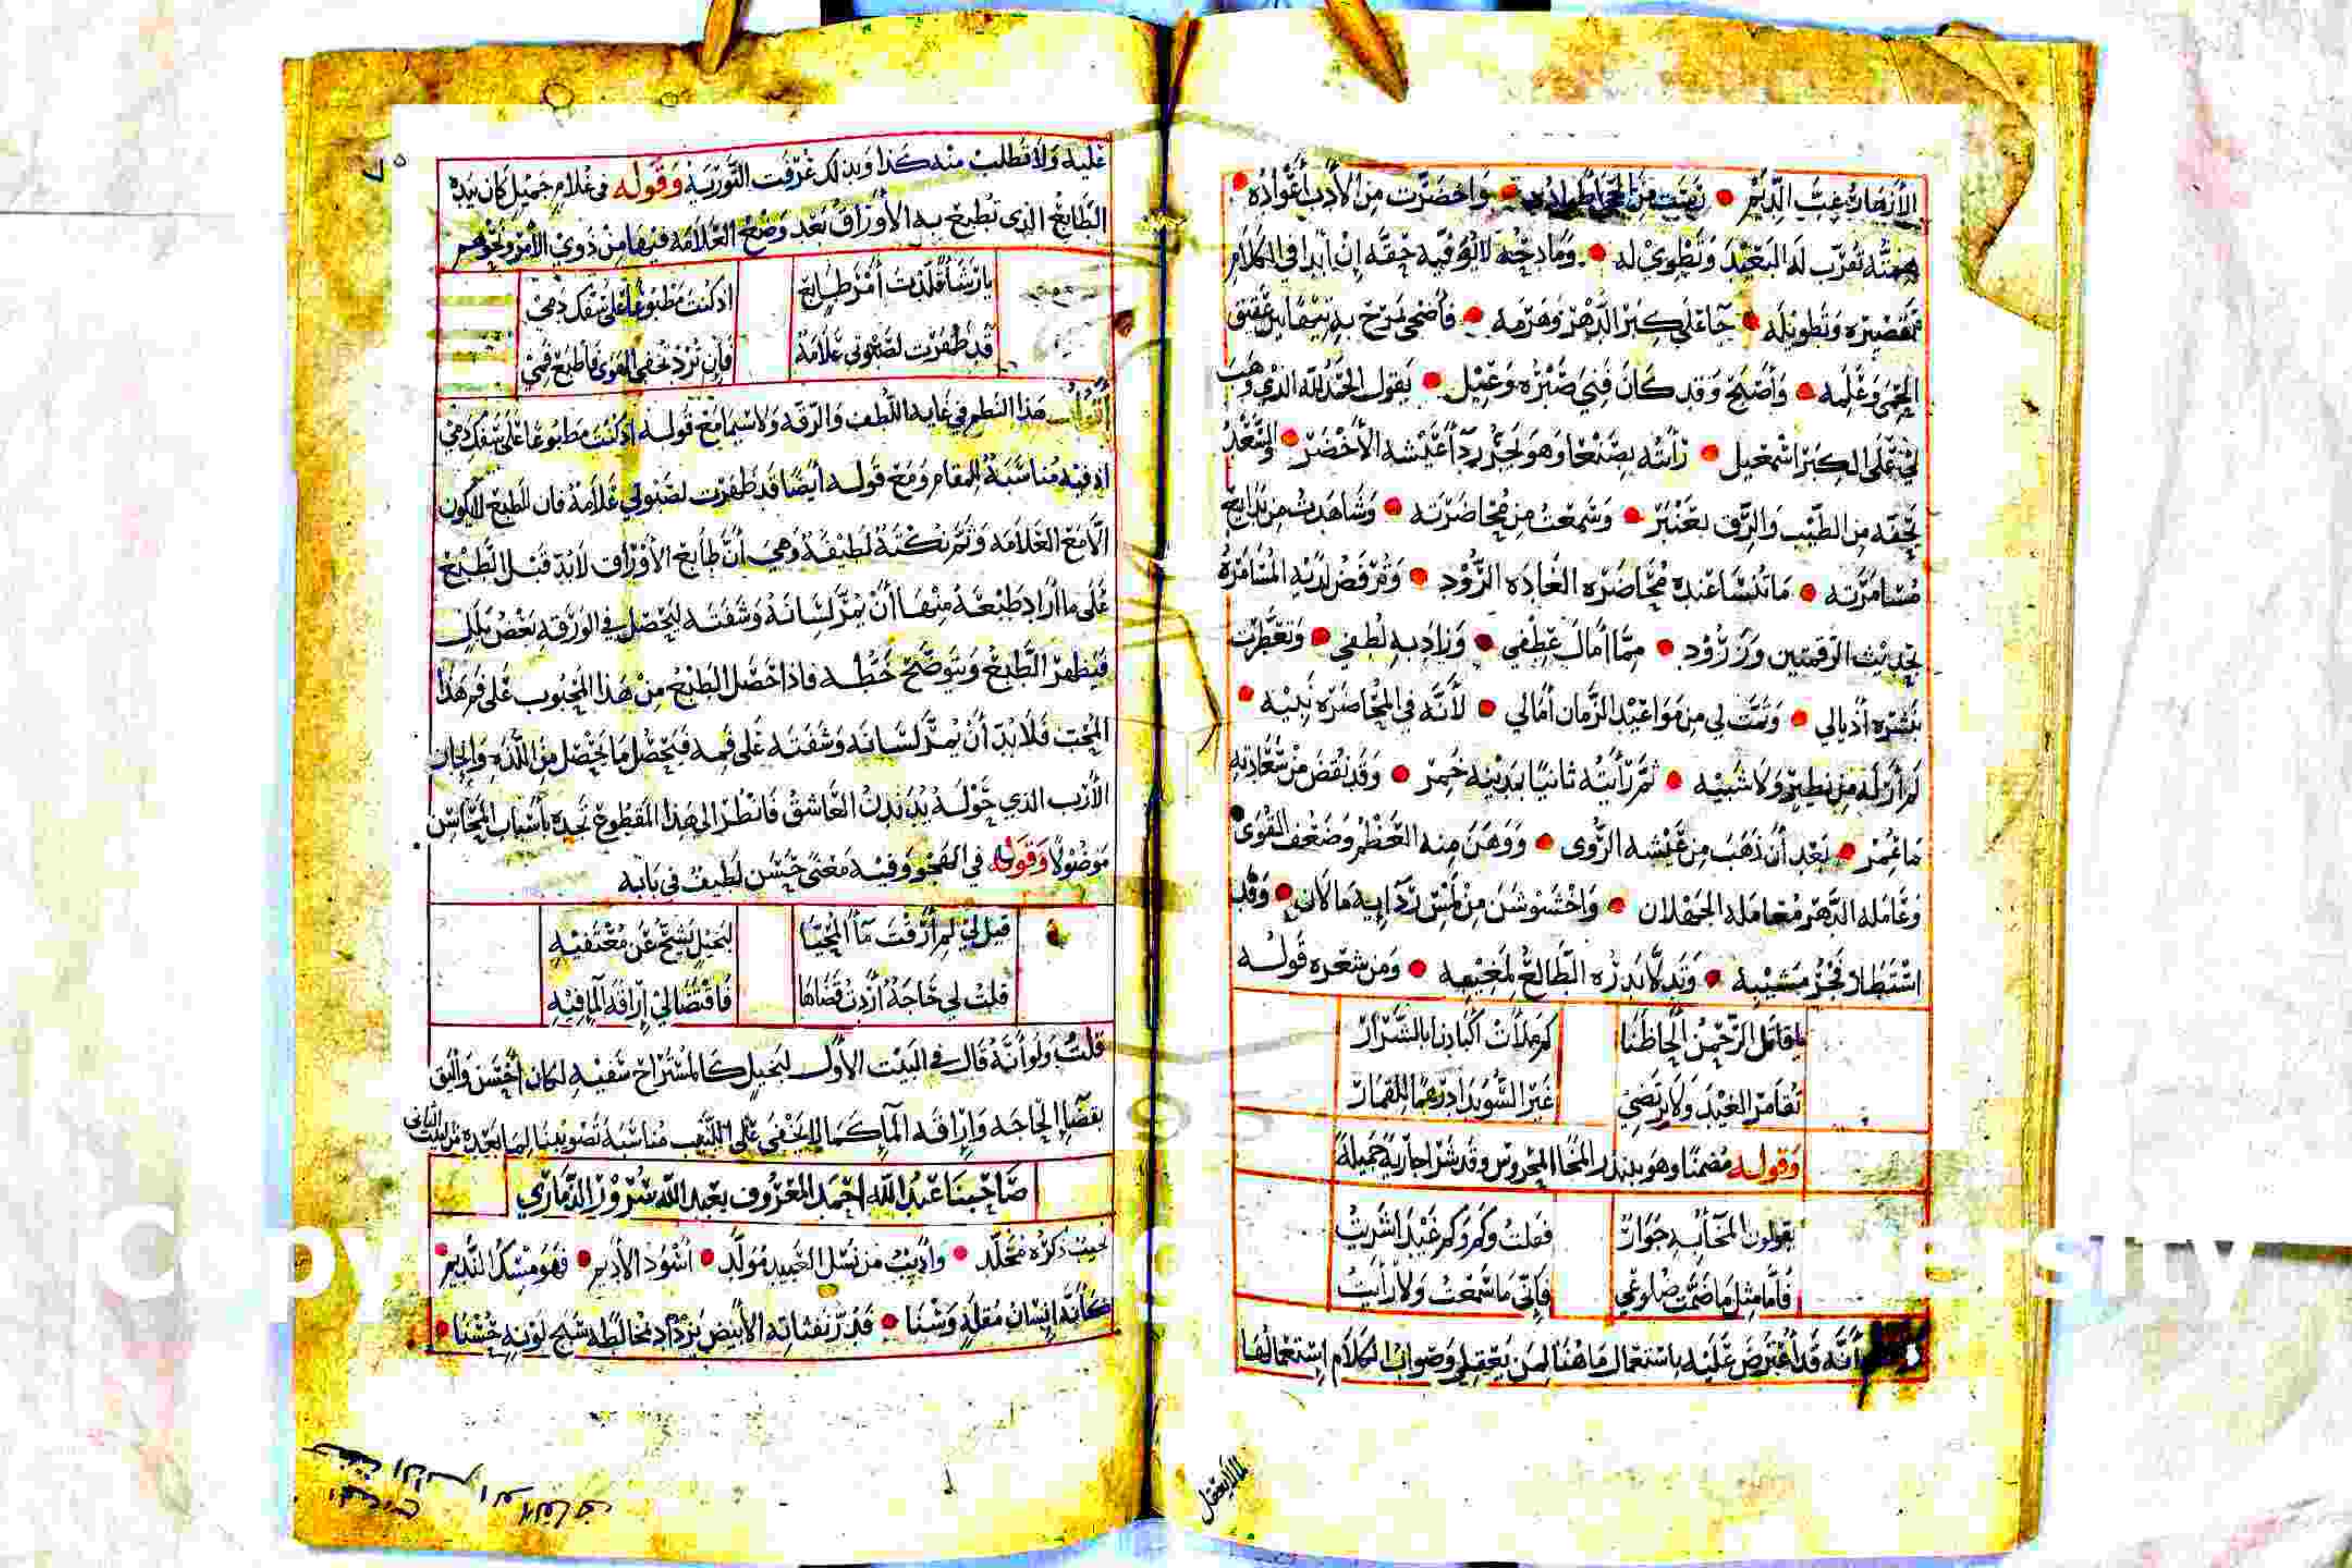 الأزهار غِبَّ الدِّيَم • نبتت من الحجا أطواده • واخضرّت من الأدب أعواده •
همته تقرب له البعيد وتطوي له • ومادحه لا يوفيه حقه إن أبدا في الكلام
تقصيره وتطويله • جا على كبر الدهر وهرمه • فأضحى يمرح به تيها بين عقيق
الحمى وعلمه • وأصبح وقد كان فني صبره وعيل • يقول الحمد لله الذي وهب
لي على الكبر اسمعيل • رأيته بصنعا وهو يجر ردا عيشه الأخضر • والسعد
يحفه من الطيب والرق بعنبر • وسمعت من محاضرته • وشاهدت من بدايع
مسامرته • ما تنسا عنده محاضره الغاده الرود • وترفض لديه المسامرة
بحديث الرقمتين وزرود • مما أمال عطفي • وزاد به لطفي • وتعطرت
بنشره أذيالي • وتمت لي من مواعيد الزمان أمالي • لأنه في المحاضره نبيه •
لم أر له من نظير ولا شبيه • ثم رأيته ثانيا بمدينه خمر • وقد نقض من سعادته
ما عمر • بعد أن ذهب من عيشه الروى • ووهن منه العظم وضعف القوى
وعامله الدهر معامله الجهلان • واخشوشن من لمس ردايه ما لان • وقد
استطار فجر مشيبه • وتدلا بدره الطالع لمغيبه • ومن شعره قوله
يا قاتل الرحمن ألحاظنا كم ملأت أكبادنا بالشرار
تقامر الغيد ولا يرتضي غير السويدا درهما للقمار
وقوله مضمنا وهو ببندر المخا المحروس وقد شرا جارية جميلة
يقولون المخا به جوار فقلت وكم وكم غيدا شريت
فأما مثل ما ضمت ضلوعي فإني ما سمعت ولا رأيت
أنه قد أعترض عليه باستعمال ما هنا لمن يعقل وصواب الكلام استعمالها
لما لا يعقل
٧٥
عليه ولا تطلب منه كذا وبذلك عرفت التورية وقوله في غلام جميل كان بيده
الطابع الذي تطبع به الأوراق بعد وضع العلامة فيها من ذوي الأمر ونحوهم
يا رشأ قلدت أمر طابع اذ كنت مطبوعا على سفك دمي
قد ظفرت لصبوتي علامة فإن ترد تخفي الهوى فاطبع فمي
أقول هذا النظم في غاية اللطف والرقة ولا سيما مع قوله اذ كنت مطبوعا على سفك دمي
اذ فيه مناسبة للمقام ومع قوله أيضا قد ظفرت لصبوتي علامة فان الطبع لا يكون
الا مع العلامة وثم نكتة لطيفة وهي أن طابع الأوراق لابد قبل الطبع
على ما أراد طبعه منها أن يمر لسانه وشفته ليحصل في الورقة بعض بلل
فيظهر الطبع ويتوضح خطه فاذا حصل الطبع من هذا المحبوب على فم هذا
المحب فلا بد أن يمر لسانه وشفته على فمه فيحصل ما يحصل من اللذه
الأرب الذي حوله يدندن العاشق فانظر الى هذا المقطوع تجده بأسباب المحاسن
موصولا وقوله في الهجو وفيه معنى حسن لطيف في بابه
قيل لي لم أرقت مآ المحيا لبخيل يشح عن معتفيه
قلت لي حاجة أردت قضاها فاقتضا لي إراقة المآ فيه
قلت ولو أنه قال في البيت الأول لبخيل كالمستراح سفيه لكان أحسن وأليق
بقضآ الحاجه وإراقه المآ كما لا يخفى على اللبيب مناسبة تصويبنا لما بعده من البيت الثاني
صاحبنا عبد الله احمد المعروف بعبد الله سرور الذماري
نجيب ذكره مخلد • وأديب من نسل العبيد مولد • أسود الأديم • فهو مسك النديم •
كأنه إنسان مقلة وسنا • قدر نفثاته الأبيض يزداد بمخالطه سبج لونه حسنا •